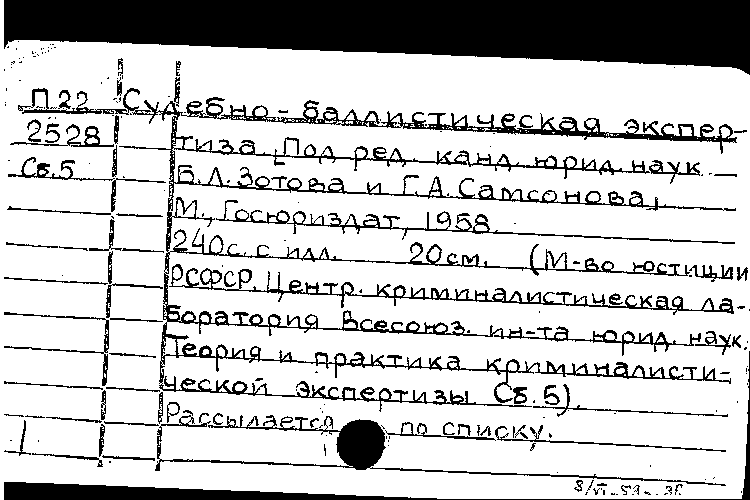 П22 Судебно-баллистическая экспер-
2528 тиза [Под ред. канд. юрид. наук
Сб.5 Б.Л.Зотова и Г.А.Самсонова,
М., Госюриздат, 1958.
240с. с илл. 20см. (М-во юстиции
РСФСР. Центр. криминалистическая ла-
боратория Всесоюз. ин-та юрид. наук.
Теория и практика криминалисти-
ческой экспертизы Сб.5).
Рассылается по списку.